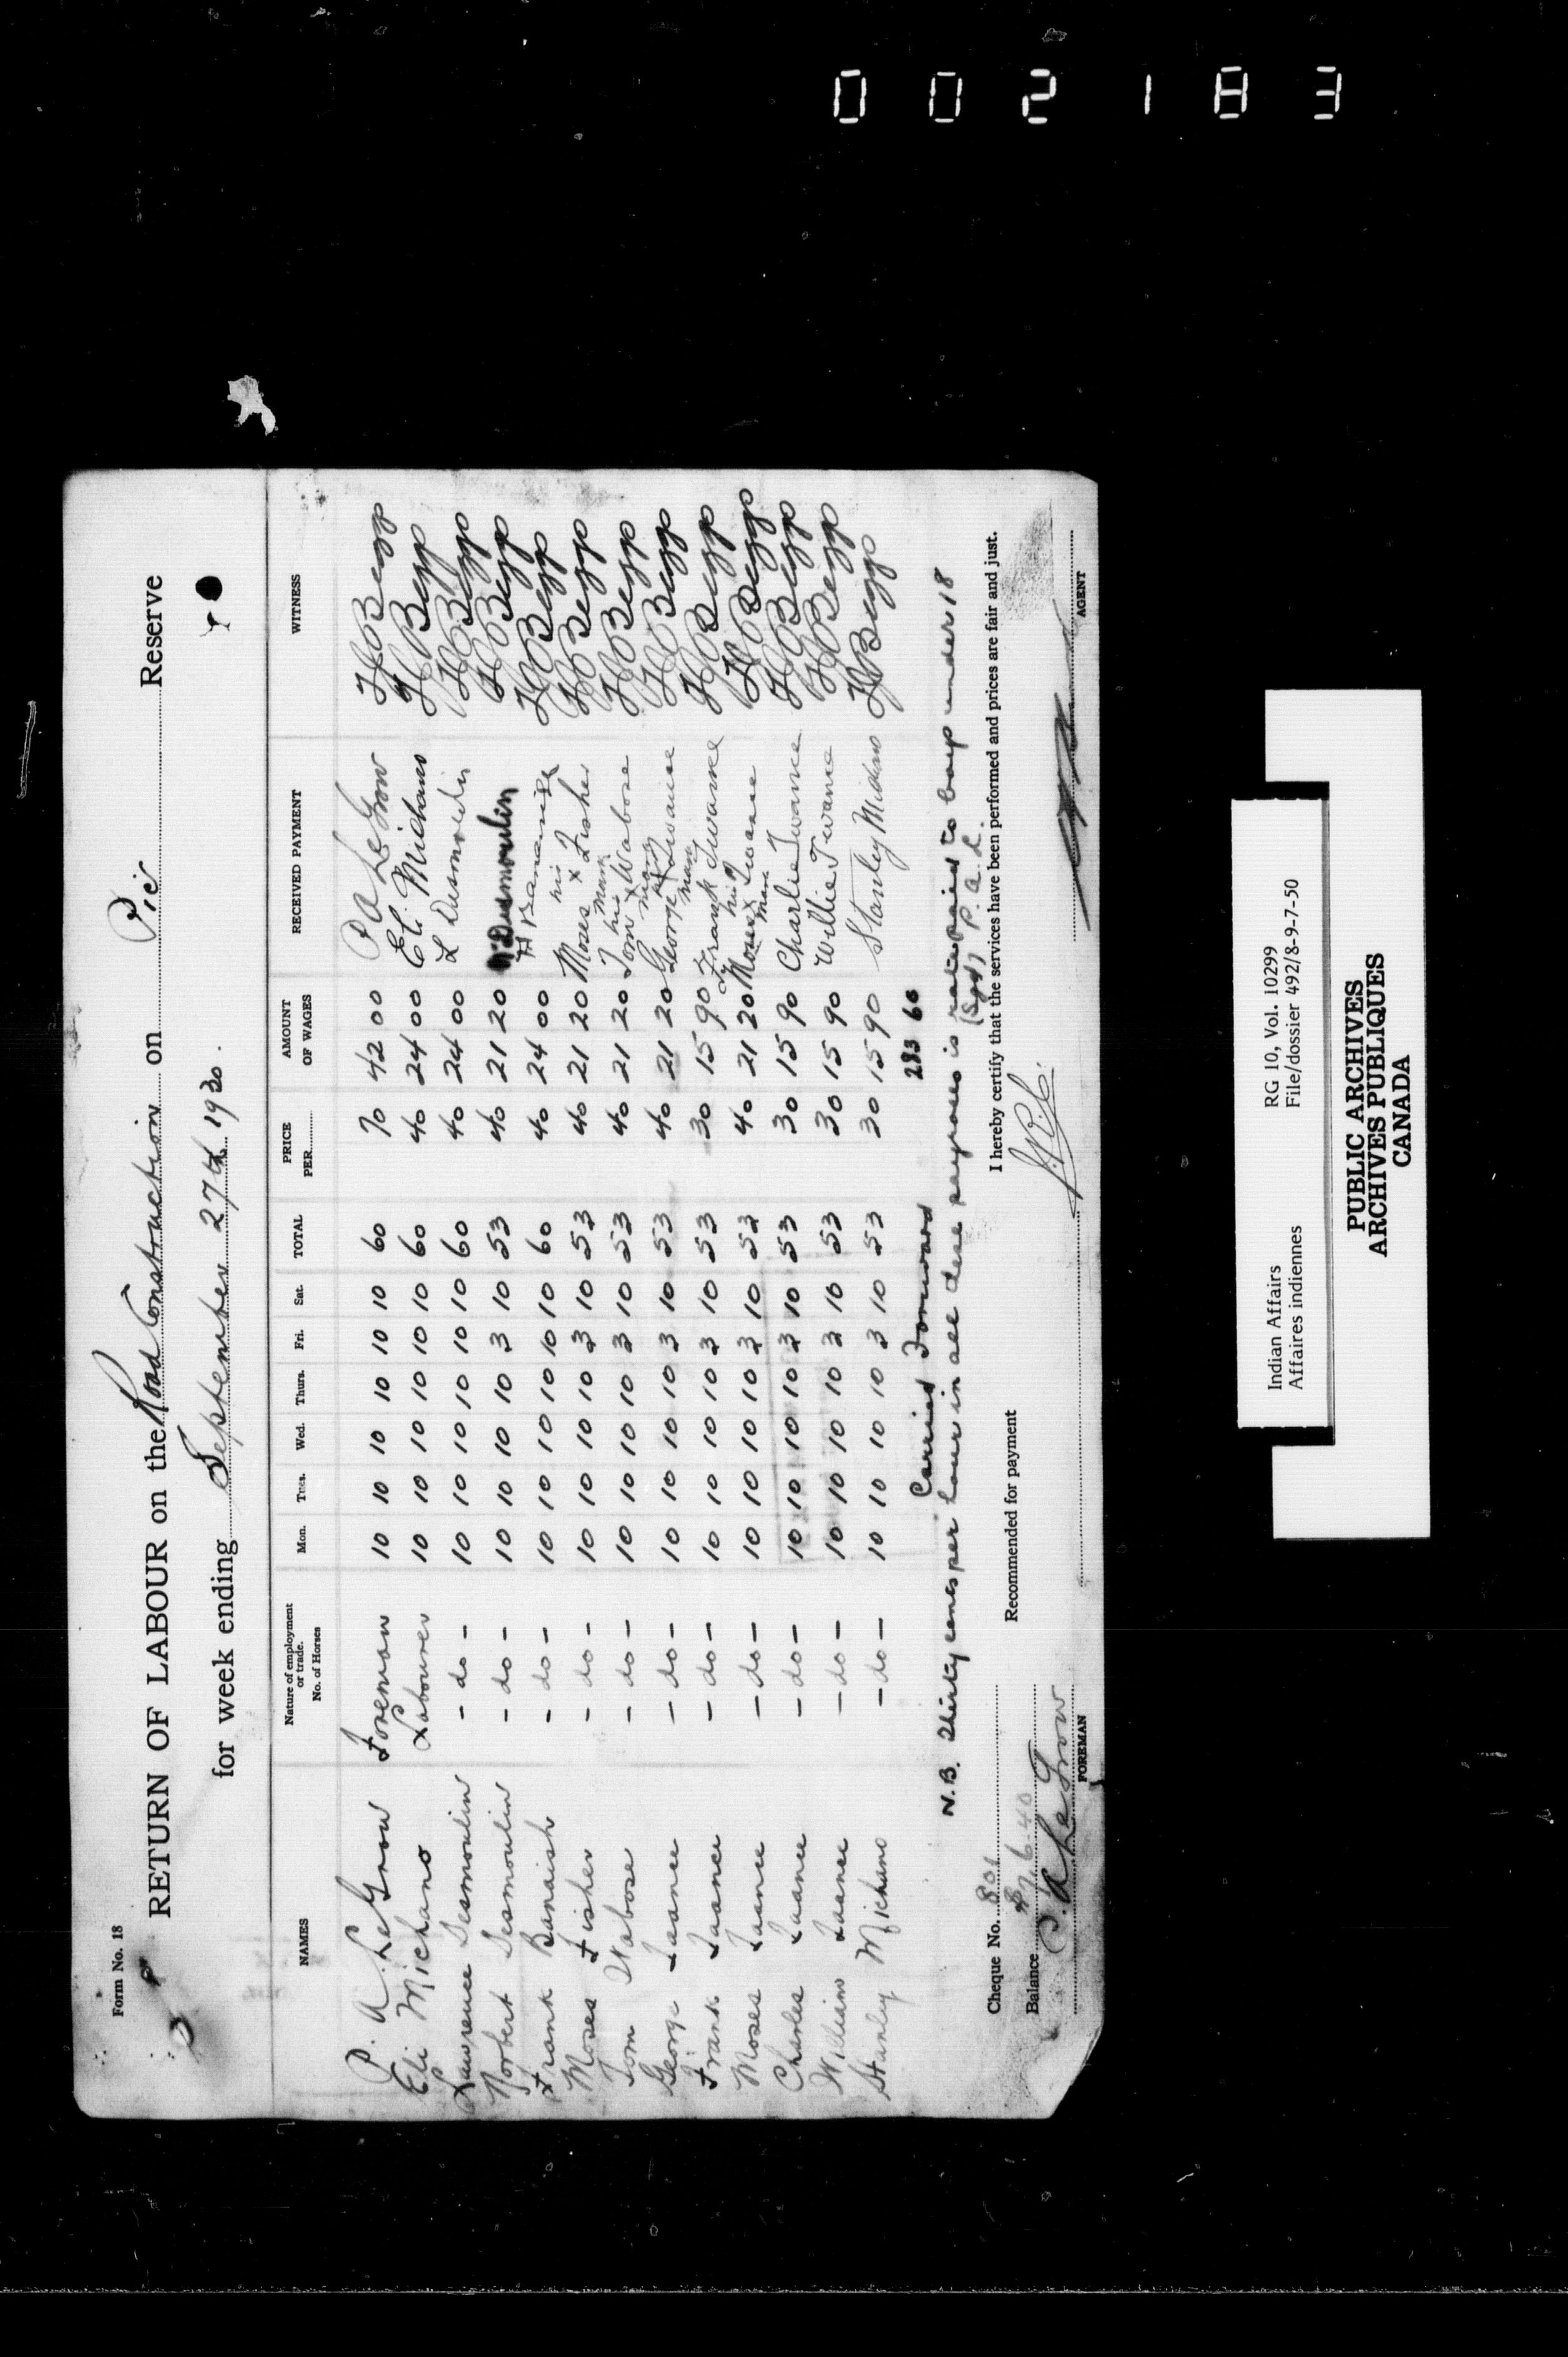 002183
Form No. 18
RETURN OF LABOUR on the Road Construction on Pic Reserve
for week ending September 27th 1930.
NAMES Nature of employment or trade. No. of Horses Mon. Tues. Wed. Thurs. Fri. Sat. TOTAL PRICE PER AMOUNT OF WAGES RECEIVED PAYMENT WITNESS
P. A. LeGrow Foreman 10 10 10 10 10 10 60 70 42 00 P A LeGrow H Begg
Eli Michano Labourer 10 10 10 10 10 10 60 40 24 00 Eli Michano H Begg
Lawrence Desmoulin - do - 10 10 10 10 10 10 60 40 24 00 L Desmoulin H Begg
Norbert Desmoulin - do - 10 10 10 10 3 10 53 40 21 20 N Desmoulin H Begg
Frank Banaish - do - 10 10 10 10 10 10 60 40 24 00 F H Begg
Moses Fisher - do - 10 10 10 10 3 10 53 40 21 20 Moses his x mark Fisher H Begg
Tom Wabose - do - 10 10 10 10 3 10 53 40 21 20 Tom his x mark Wabose H Begg
George Twance - do - 10 10 10 10 3 10 53 40 21 20 George his x mark Twance H Begg
Frank Twance - do - 10 10 10 10 3 10 53 30 15 90 Frank Twance H Begg
Moses Twance - do - 10 10 10 10 3 10 53 40 21 20 Moses his x mark Twance H Begg
Charles Twance - do - 10 10 10 10 3 10 53 30 15 90 Charlie Twance H Begg
William Twance - do - 10 10 10 10 3 10 53 30 15 90 Willie Twance H Begg
Stanley Michano - do - 10 10 10 10 3 10 53 30 15 90 Stanley Michano H Begg
Carried Forward 283 60
N.B. Thirty cents per hour in all these payrolls is rate paid to boys under 18
(Sgd) P. A. L.
I hereby certify that the services have been performed and prices are fair and just.
Cheque No. 801 Recommended for payment
Balance
P. A. LeGrow
FOREMAN AGENT
Indian Affairs RG 10, Vol. 10299
Affaires indiennes File/dossier 492/8-9-7-50
PUBLIC ARCHIVES
ARCHIVES PUBLIQUES
CANADA